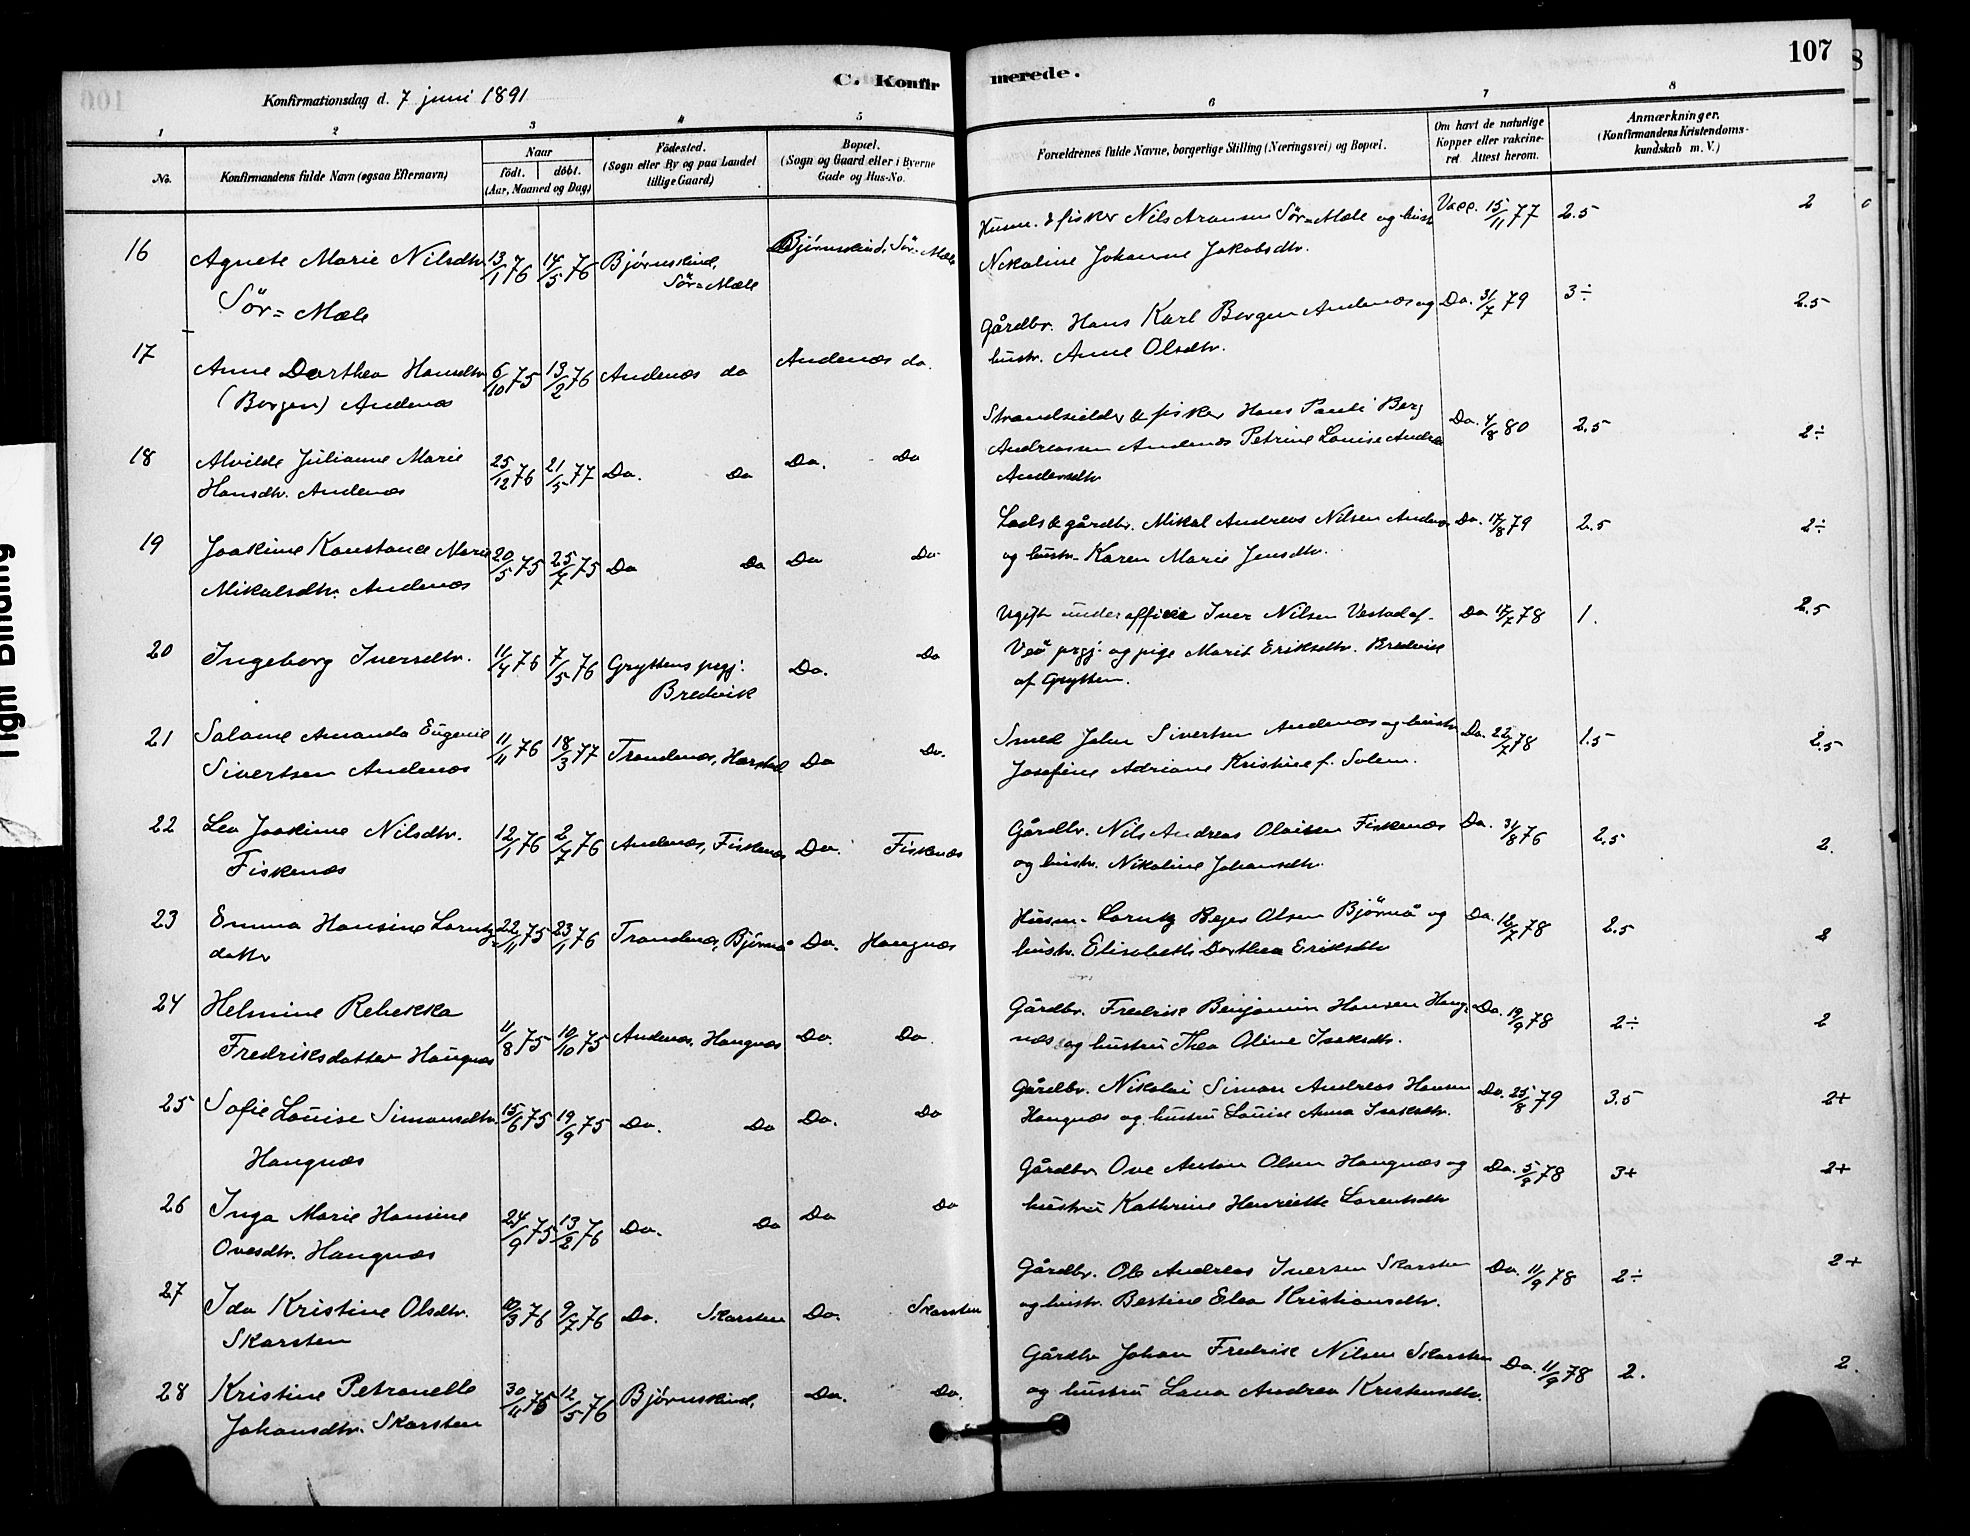 107
C. Konfirmerede.
Konfirmationsdag d. 7 juni 1891
1 2 3 4 5 6 7 8
No.
Konfirmandens fulde Navn (ogsaa Efternavn)
Naar
födt. döbt.
(Aar, Maaned og Dag)
Födested.
(Sogn eller By og paa Landet
tillige Gaard)
Bopæl.
(Sogn og Gaard eller i Byerne
Gade og Hus-No.
Forældrenes fulde Navne, borgerlige Stilling (Næringsvei) og Bopæl.
Om havt de naturlige
Kopper eller vakcine-
ret Attest herom.
Anmærkninger.
(Konfirmandens Kristendoms-
kundskab m. V.)
16 Agnete Marie Nilsdtr. 13/1 76 14/5 76 Bjørnskind, Bjørnskind, Sör-Mæle Husm. & fisker Nils Aronsen Sör-Mæle og hustr. Vacc. 15/11 77 2.5 2
Sör=Mæle Sör=Mæle Nikoline Johanne Jakobsdtr.
17 Anne Dorthea Hansdtr. 6/10 75 13/2 76 Andenæs do Andenæs do. Gårdbr. Hans Karl Borgen Andenæs og Do. 31/7 79 3÷ 2.5
(Borgen) Andenæs hustr. Anne Olsdtr.
18 Alvilde Julianne Marie 25/12 76 21/5 77 Do. Do Do. Do Strandsidder & fisker Hans Pauli Berg Do. 4/8 80 2.5 2÷
Hansdtr. Andenæs Andreassen Andenæs Petrine Louise Andrea
Andersdtr
19 Joakime Konstance Marie 20/5 75 25/7 75 Do Do Do Do Lods & gårdbr. Mikal Andreas Nilsen Andenæs Do. 17/8 79 2.5 2÷
Mikalsdtr. Andenæs og hustr. Karen Marie Jensdtr.
20 Ingeborg Iversdtr. 11/4 76 7/5 76 Gryttens prgj: Do. Do Ugift underofficer Iver Nilsen Vestad af Do 17/7 78 1. 2.5
Bredvik Veö prgj: og pige Marit Eriksdtr. Bredvik
af Grytten.
21 Salome Amanda Eugenie 11/11 76 18/3 77 Trondenæs, Harstad Do Do. Smed John Sivertsen Andenæs og hustr Do. 22/7 78 1.5 2.5
Sivertsen Andenæs Josefine Adriane Kristine f. Solem.
22 Lea Joakime Nilsdtr. 12/1 76 2/7 76 Andenæs, Fiskenæs Do. Fiskenæs Gårdbr. Nils Andreas Olaisen Fiskenæs Do. 31/8 76 2.5 2.
Fiskenæs og hustr. Nikoline Johansdtr.
23 Emma Hansine Lorntz- 22/11 75 23/1 76 Trondenæs, Bjørnå Do. Haugnæs Husm. Lorntz Bejer Olsen Björnå og Do. 12/7 78 2.5 2
datter hustr. Elisabeth Dorthea Eriksdtr
24 Helmine Rebekka 11/8 75 10/10 75 Andenæs, Haugnæs Do. Do. Gårdbr. Fredrik Benjamin Hansen Haug- Do. 19/9 78 2÷ 2
Fredriksdatter Haugnæs næs og hustru Thea Oline Isaksdtr.
25 Sofie Louise Simonsdtr. 15/6 75 19/9 75 Do. Do Do. Do Gårdbr. Nikolai Simon Andreas Hansen Do. 25/8 79 3.5 2+
Haugnæs Haugnæs og hustru Louise Anna Isaksdtr.
26 Inga Marie Hansine 24/9 75 13/2 76 Do. Do Do Do Gårdbr Ove Anton Olsen Haugnæs og Do. 5/9 78 3+ 2+
Ovesdtr. Haugnæs hustru Kathrine Henriette Lorentsdtr
27 Ida Kristine Olsdtr. 10/3 76 9/7 76 Do. Skarsten Do. Skarsten Gårdbr. Ole Andreas Iversen Skarsten Do. 11/9 78 2÷ 2+
Skarsten og hustr. Bertine Elea Kristiansdtr.
28 Kristine Petronelle 30/11 75 12/5 76 Bjørnskind, Do. Do. Gårdbr Johan Fredrik Nilsen Skarsten Do. 11/9 78 2. 2.
Johansdtr. Skarsten og hustru Lana Andrea Kristensdtr.
Tight Binding